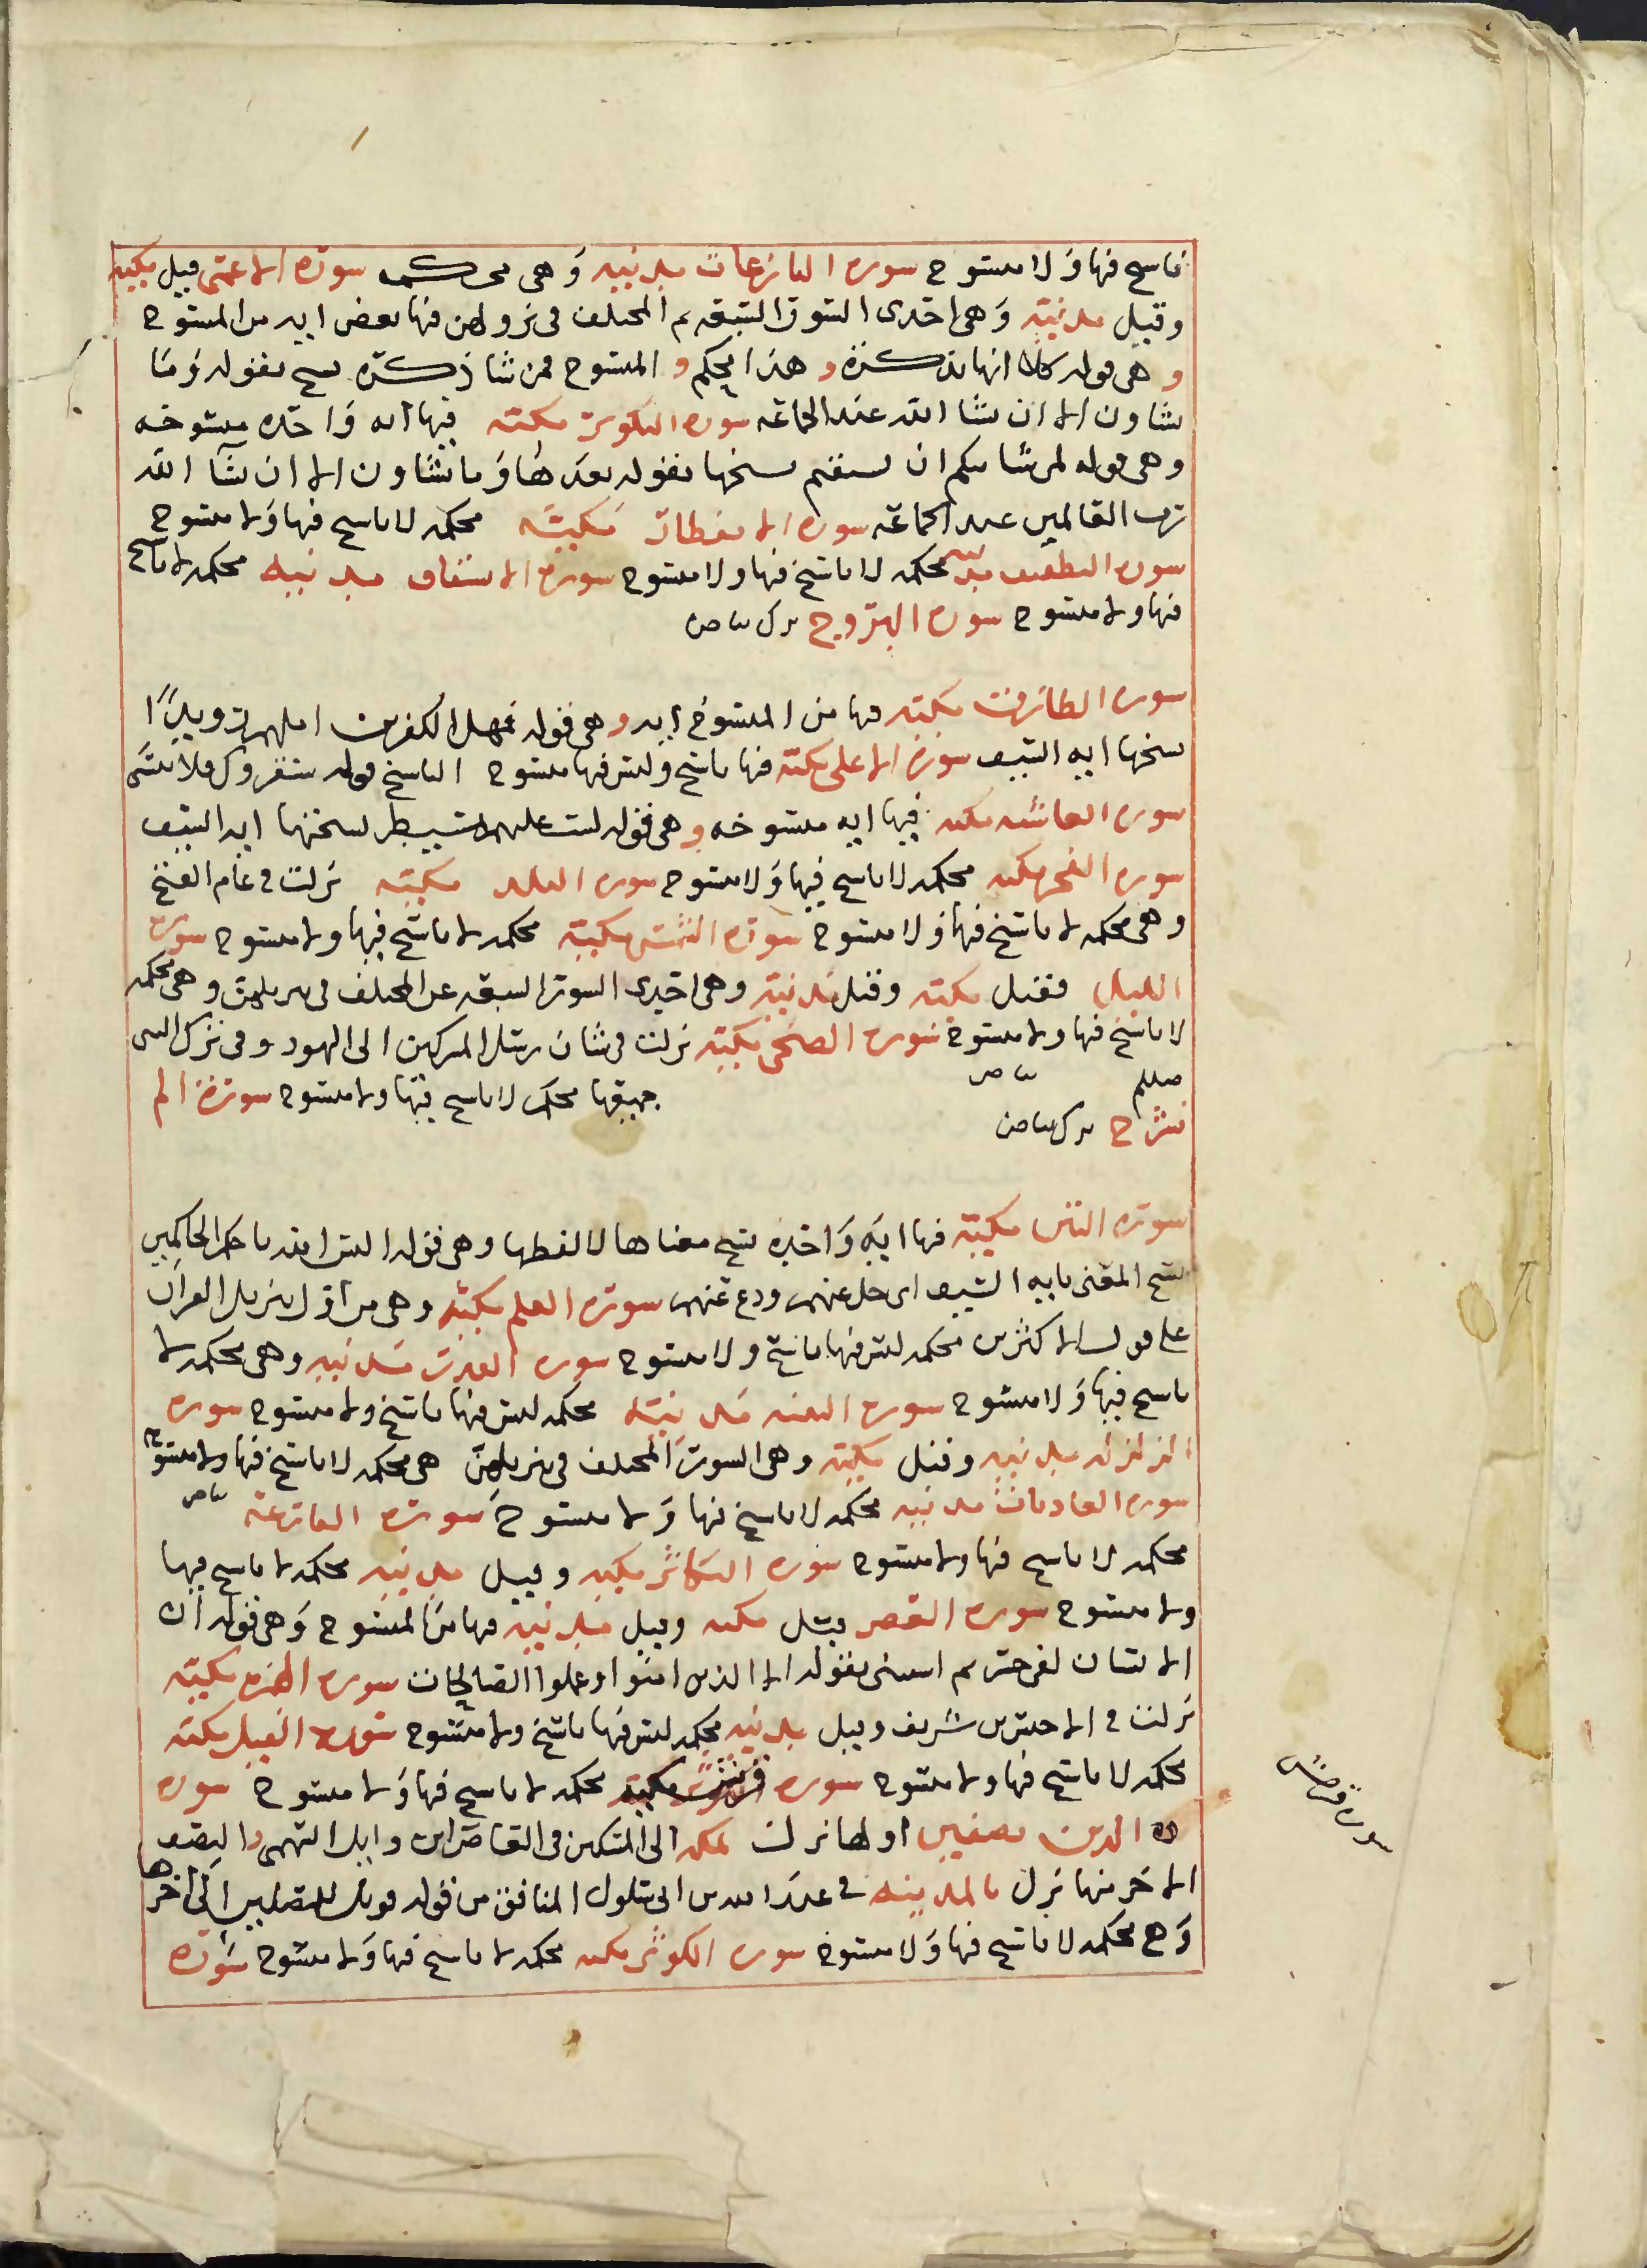 ناسخ فيها ولا منسوخ سورة النازعات مدنية وهي محكمه سورة الاعمى قيل مكية
وقيل مدنية وهي احدى السور السبعة م المختلف في نزولهن فيها بعض اية من المنسوخ
وهي قوله كلا انها تذكرة وهذا محكم و المنسوخ فمن شا ذكره نسخ بقوله وما
تشاون الا ان شا الله عند الجماعة سورة التكوير مكية فيها اية واحدة منسوخة
وهي قوله لمن شا منكم ان يستقيم نسخها بقوله بعدها وما تشاون الا ان يشآ الله
رب العالمين عند الجماعة سورة الانفطار مكية محكمه لا ناسخ فيها ولا منسوخ
سورة التطفيف مدنية محكمه لا ناسخ فيها ولا منسوخ سورة الانشقاق مدنية محكمه لا ناسخ
فيها ولا منسوخ سورة البروج ترك بياض
سورة الطارق مكية فيها من المنسوخ اية وهي قوله فمهل الكفرين امهلهم رويدًا
نسخها اية السيف سورة الاعلى مكية فيها ناسخ وليس فيها منسوخ الناسخ قوله سنقروك فلا تنسى
سورة الغاشية مكية فيها اية منسوخة وهي قوله لست عليهم بمسيطر نسختها اية السيف
سورة الفجر مكية محكمه لا ناسخ فيها ولا منسوخ سورة البلد مكية نزلت في عام الفتح
وهي محكمه لا ناسخ فيها ولا منسوخ سورة الشمس مكية محكمه لا ناسخ فيها ولا منسوخ سورة
الليل فقيل مكية وقيل مدنية وهي احدى السور السبعة عن المختلف في تنزيلهن وهي محكمه
لا ناسخ فيها ولا منسوخ سورة الضحى مكية نزلت في شان المشركين الى اليهود وفي ترك النبى
صللم بياض جميعها محكم لا ناسخ فيها ولا منسوخ سورة الم
نشرح ترك بياض
سورة التين مكية فيها اية واحدة نسخ معناها لا لفظها وهي قوله اليس الله باحكم الحاكمين
نسخ المعنى باية السيف اى خل عنهم ودع عنهم سورة العلم مكية وهي من اول تنزيل القران
على قول الاكثرين محكمه ليس فيها ناسخ ولا منسوخ سورة القدر مدنية وهي محكمه لا
ناسخ فيها ولا منسوخ سورة البينة مدنية محكمه ليس فيها ناسخ ولا منسوخ سورة
الزلزلة مدنية وقيل مكية وهي السور المختلف في تنزيلهن هي محكمه لا ناسخ فيها ولا منسوخ
سورة العاديات مدنية محكمه لا ناسخ فيها ولا منسوخ سورة القارعة بياض
محكمه لا ناسخ فيها ولا منسوخ سورة التكاثر مكية وقيل مدنية محكمه لا ناسخ فيها
ولا منسوخ سورة العصر قيل مكية وقيل مدنية فيها من المنسوخ وهي قوله ان
الانسان لفى خسر م استثنى بقوله الا الذين امنوا وعملوا الصالحات سورة الهمزة مكية
نزلت في الاخنس بن شريف وقيل مدنية محكمه ليس فيها ناسخ ولا منسوخ سورة الفيل مكية
محكمه لا ناسخ فيها ولا منسوخ سورة قريش مكية محكمه لا ناسخ فيها ولا منسوخ سورة
الدين نصفين اولها نزلت بمكة الى المشركين في العاص ابن وايل السهمى والنصف
الاخر منها نزل بالمدينة في عبد الله بن ابى سلول المنافق من قوله فويل للمصلين الى اخرها
وهي محكمه لا ناسخ فيها ولا منسوخ سورة الكوثر مكية محكمه لا ناسخ فيها ولا منسوخ سورة
سورة قريش